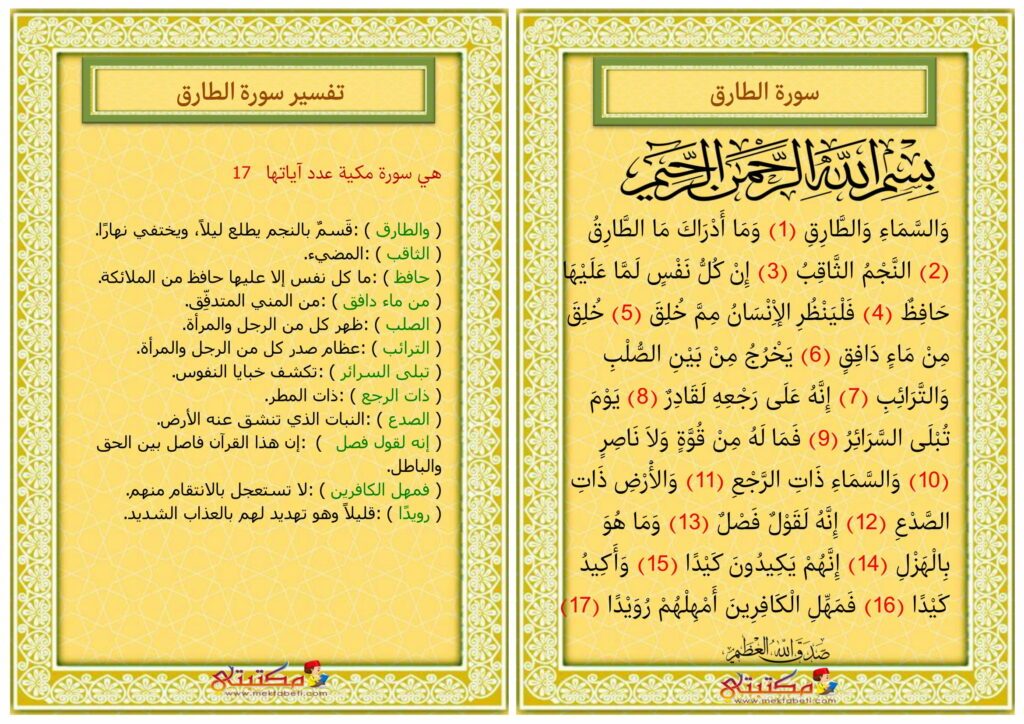 سورة الطارق
بِسْمِ اللَّهِ الرَّحْمَنِ الرَّحِيمِ
وَالسَّمَاءِ وَالطَّارِقِ (1) وَمَا أَدْرَاكَ مَا الطَّارِقُ
(2) النَّجْمُ الثَّاقِبُ (3) إِنْ كُلُّ نَفْسٍ لَمَّا عَلَيْهَا
حَافِظٌ (4) فَلْيَنْظُرِ الإِْنْسَانُ مِمَّ خُلِقَ (5) خُلِقَ
مِنْ مَاءٍ دَافِقٍ (6) يَخْرُجُ مِنْ بَيْنِ الصُّلْبِ
وَالتَّرَائِبِ (7) إِنَّهُ عَلَى رَجْعِهِ لَقَادِرٌ (8) يَوْمَ
تُبْلَى السَّرَائِرُ (9) فَمَا لَهُ مِنْ قُوَّةٍ وَلاَ نَاصِرٍ
(10) وَالسَّمَاءِ ذَاتِ الرَّجْعِ (11) وَالأَْرْضِ ذَاتِ
الصَّدْعِ (12) إِنَّهُ لَقَوْلٌ فَصْلٌ (13) وَمَا هُوَ
بِالْهَزْلِ (14) إِنَّهُمْ يَكِيدُونَ كَيْدًا (15) وَأَكِيدُ
كَيْدًا (16) فَمَهِّلِ الْكَافِرِينَ أَمْهِلْهُمْ رُوَيْدًا (17)
صَدَقَ اللهُ العَظِيم
مكتبتي
www.mektabeti.com
تفسير سورة الطارق
هي سورة مكية عدد آياتها 17
( والطارق ) :قَسمٌ بالنجم يطلع ليلاً، ويختفي نهارًا.
( الثاقب ) :المضيء.
( حافظ ) :ما كل نفس إلا عليها حافظ من الملائكة.
( من ماء دافق ) :من المني المتدفِّق.
( الصلب ) :ظهر كل من الرجل والمرأة.
( الترائب ) :عظام صدر كل من الرجل والمرأة.
( تبلى السرائر ) :تكشف خبايا النفوس.
( ذات الرجع ) :ذات المطر.
( الصدع ) :النبات الذي تنشق عنه الأرض.
( إنه لقول فصل ) :إن هذا القرآن فاصل بين الحق
والباطل.
( فمهل الكافرين ) :لا تستعجل بالانتقام منهم.
( رويدًا ) :قليلاً وهو تهديد لهم بالعذاب الشديد.
مكتبتي
www.mektabeti.com